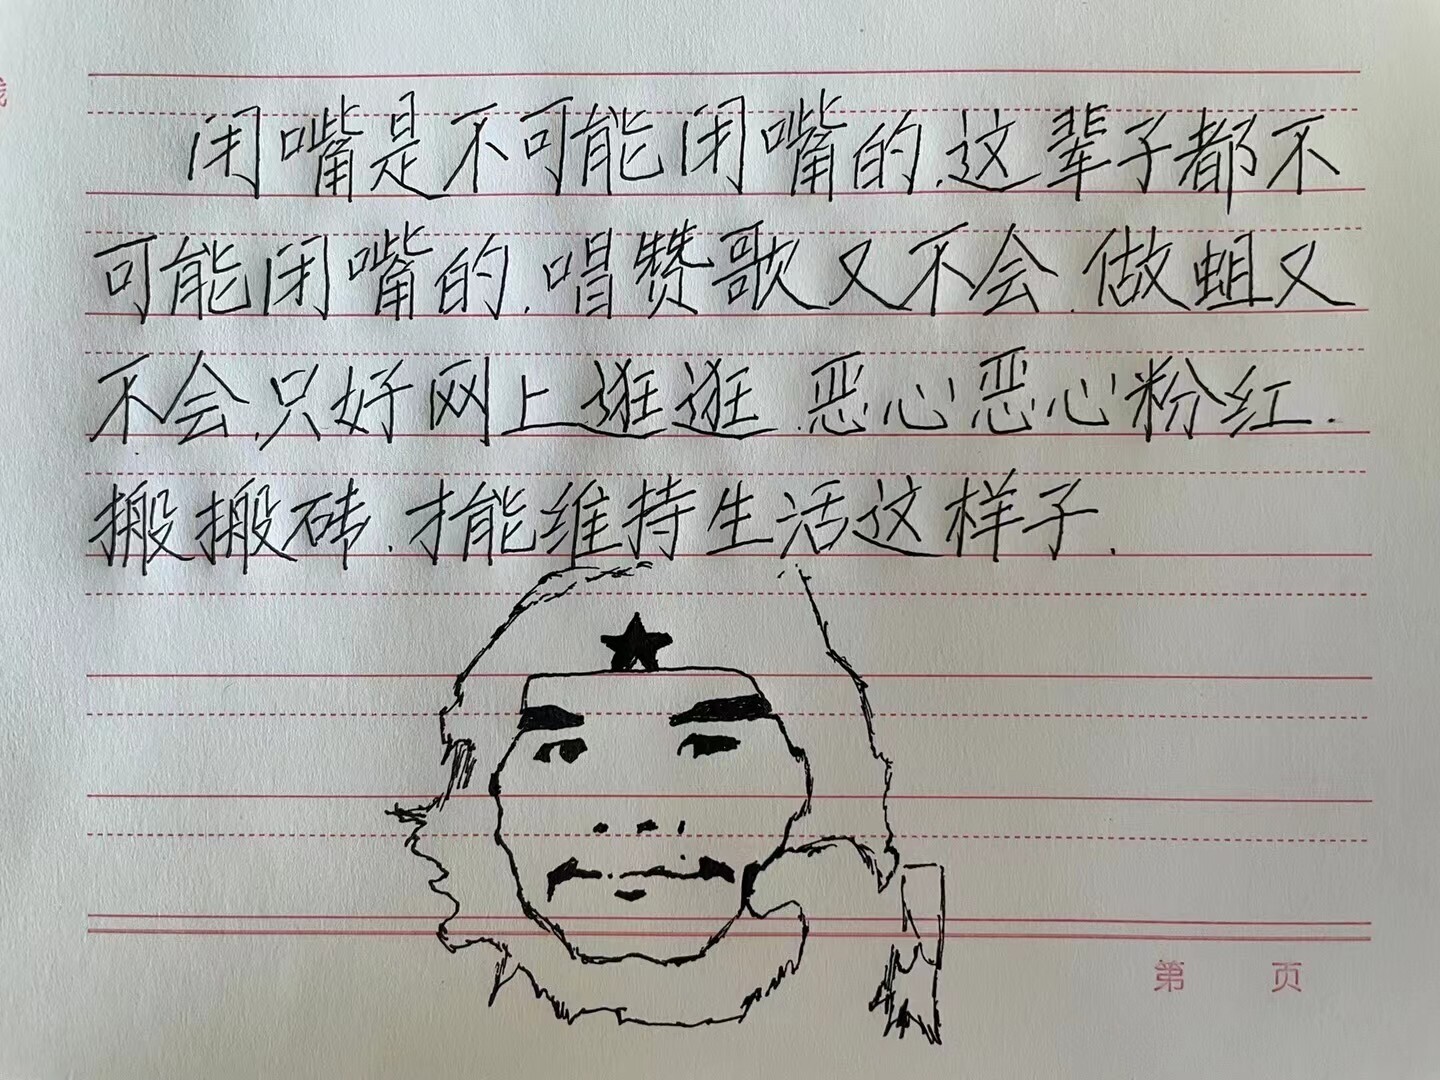 闭嘴是不可能闭嘴的.这辈子都不
可能闭嘴的.唱赞歌又不会.做蛆又
不会.只好网上逛逛.恶心恶心粉红.
搬搬砖.才能维持生活这样子.
第 页